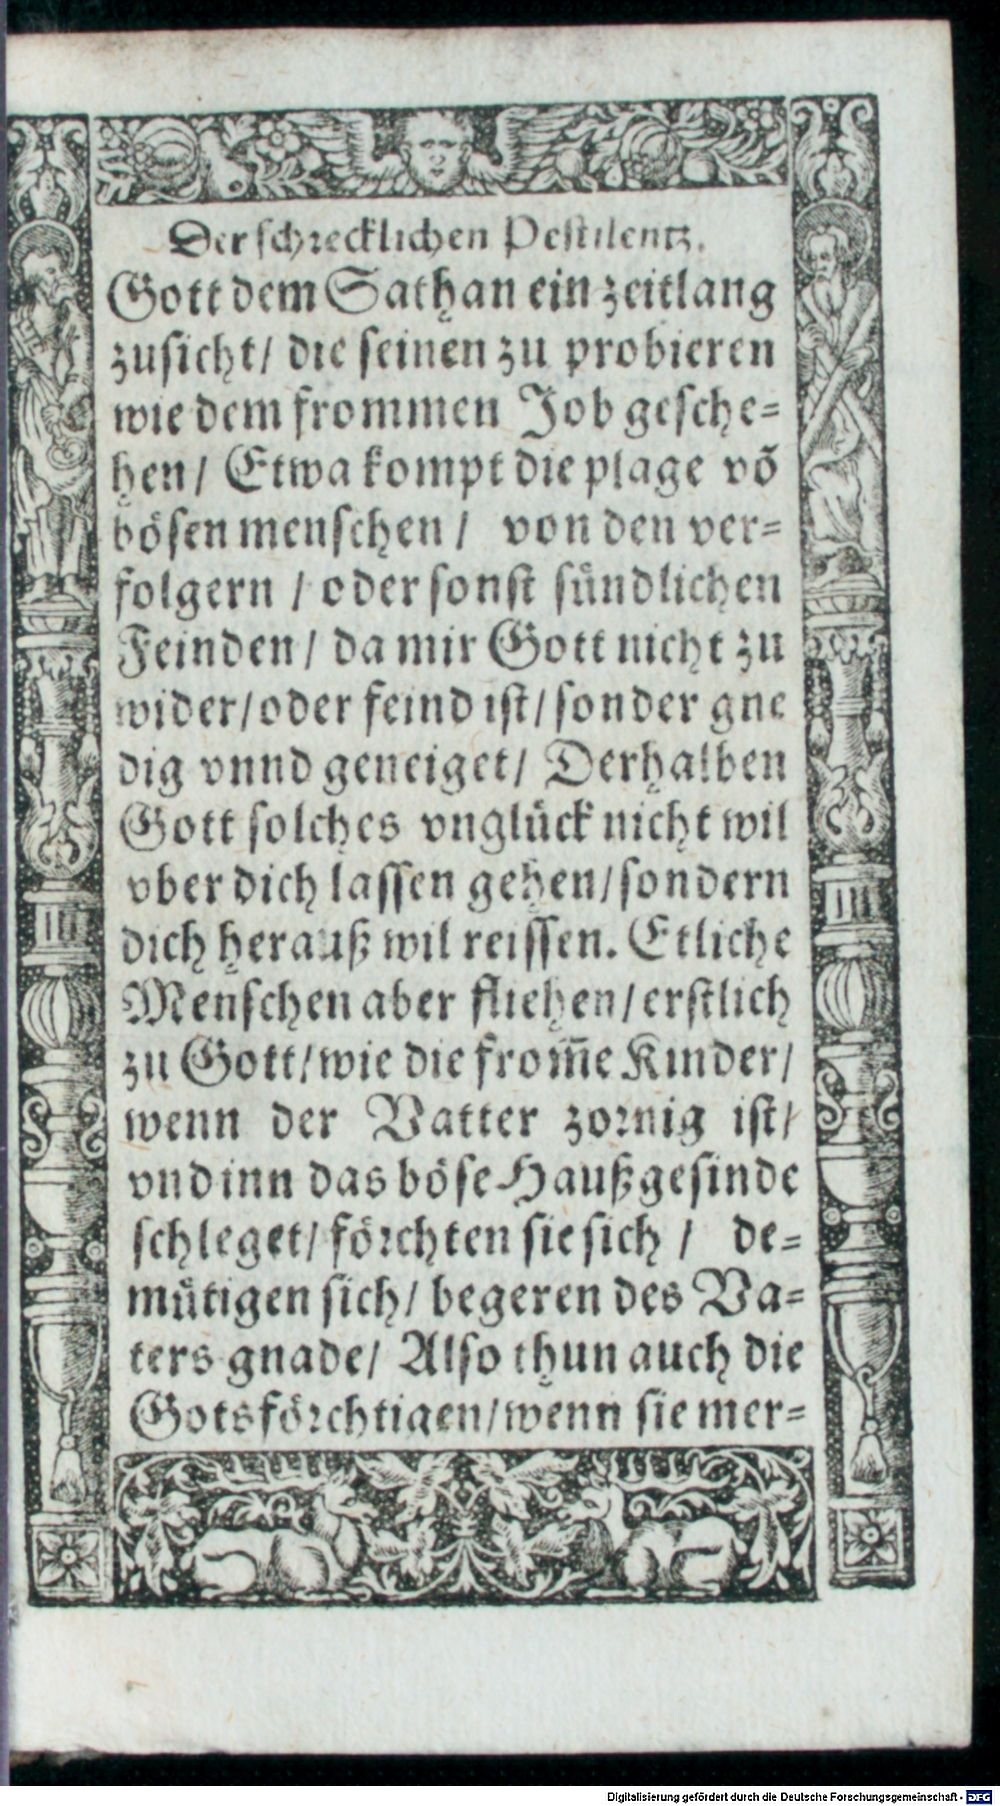 Der schrecklichen Pestilentz.
Gott dem Sathan ein zeitlang
zusicht/ die seinen zu probieren
wie dem frommen Job gesche-
hen/ Etwa kompt die plage vō
bösen menschen/ von den ver-
folgern / oder sonst sündlichen
Feinden/ da mir Gott nicht zu
wider/oder feind ist/sonder gne
dig vnnd geneiget/ Derhalben
Gott solches vnglück nicht wil
vber dich lassen gehen/sondern
dich herauß wil reissen. Etliche
Menschen aber fliehen/erstlich
zu Gott/wie die from̄e Kinder/
wenn der Vatter zornig ist/
vnd inn das böse Haußgesinde
schleget/ förchten sie sich / de-
mütigen sich/ begeren des Va-
ters gnade/ Also thun auch die
Gotsförchtigen/wenn sie mer-
Digitalisierung gefördert durch die Deutsche Forschungsgemeinschaft - DFG